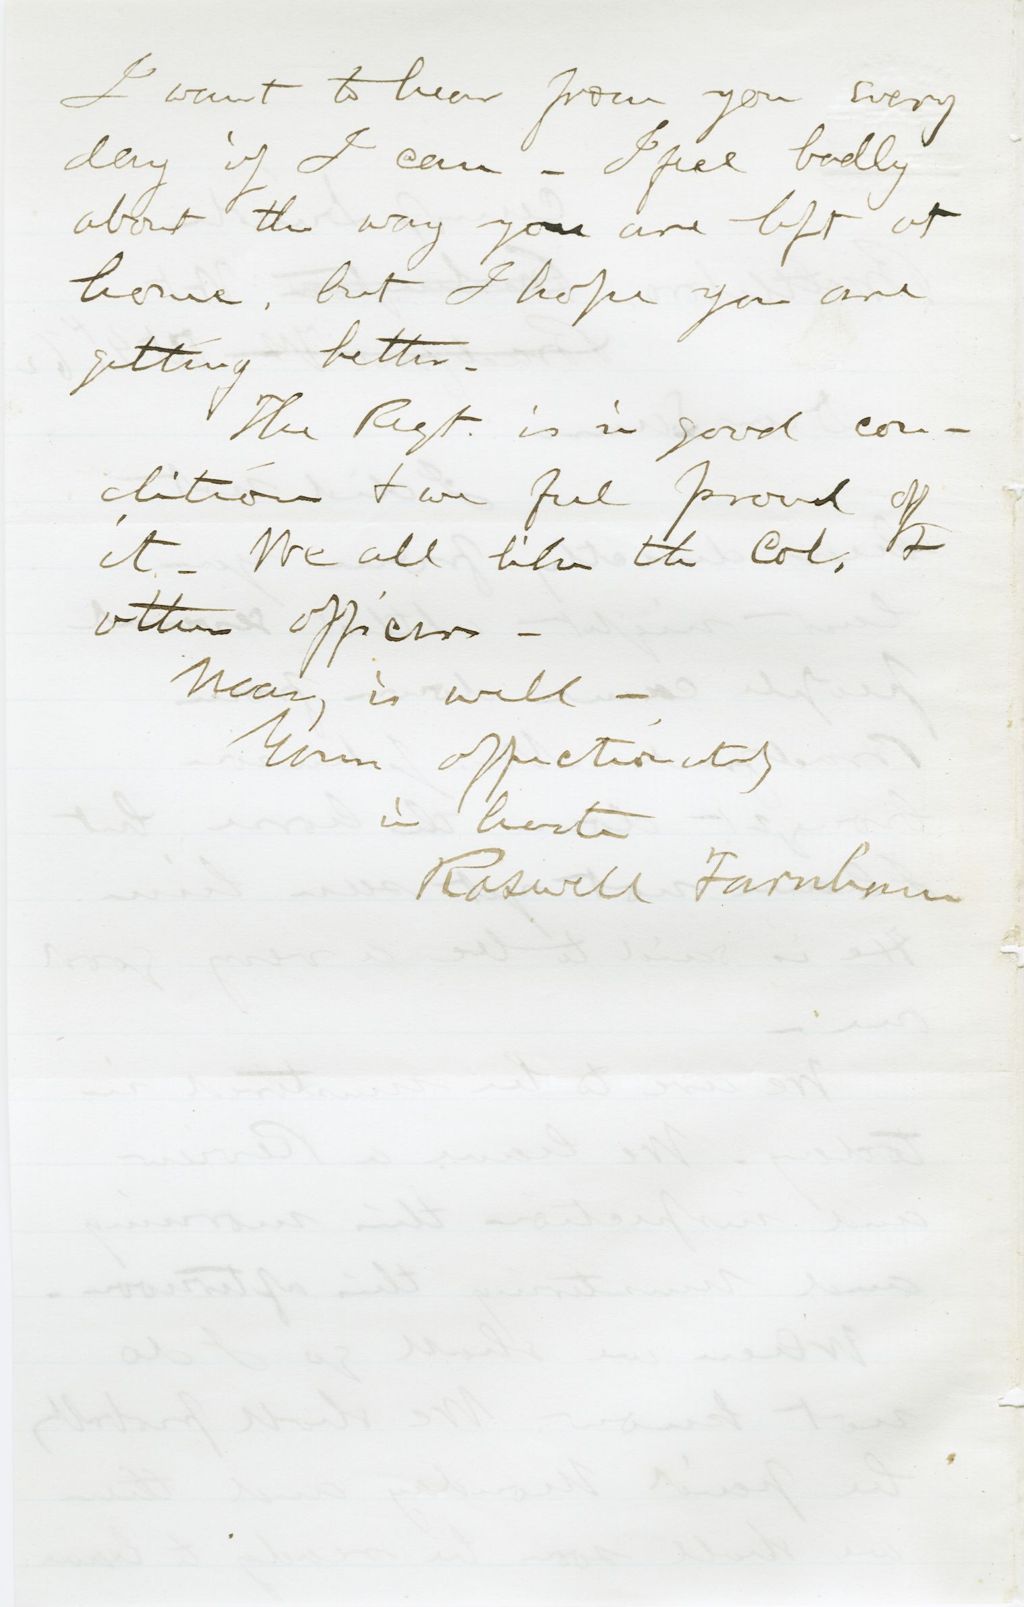 I want to hear from you every
day if I can - I feel badly
about the way you are left at
home, but I hope you are
getting better -
The Regt. is in good con-
dition & we feel proud of
it - We all like the Col. &
other officers -
Mary is well -
Yours affectionately
in haste
Roswell Farnham